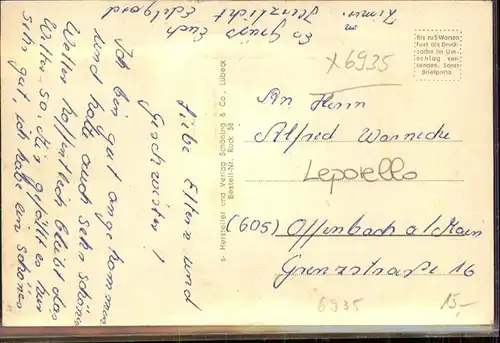 Liebe Eltern und
Geschwister!
Ich bin gut angekommen
und hatte auch sehr schönes
Wetter hoffentlich bleibt das
Wetter so. Mir gefällt es hier
sehr gut, ich habe ein schönes
Zimmer.
Es grüßt Euch
Herzlichst Edelgard
s- Hersteller und Verlag Schöning & Co., Lübeck
Bestell-Nr. Ruck 58
x6935
Bis zu 5 Worten
Text als Druck-
sache im Um-
schlag ver-
senden. Sonst
Briefporto.
An Herrn
Alfred Warnecke
Leporello
(605) Offenbach a/Main
Grenzstraße 16
6935
15,-